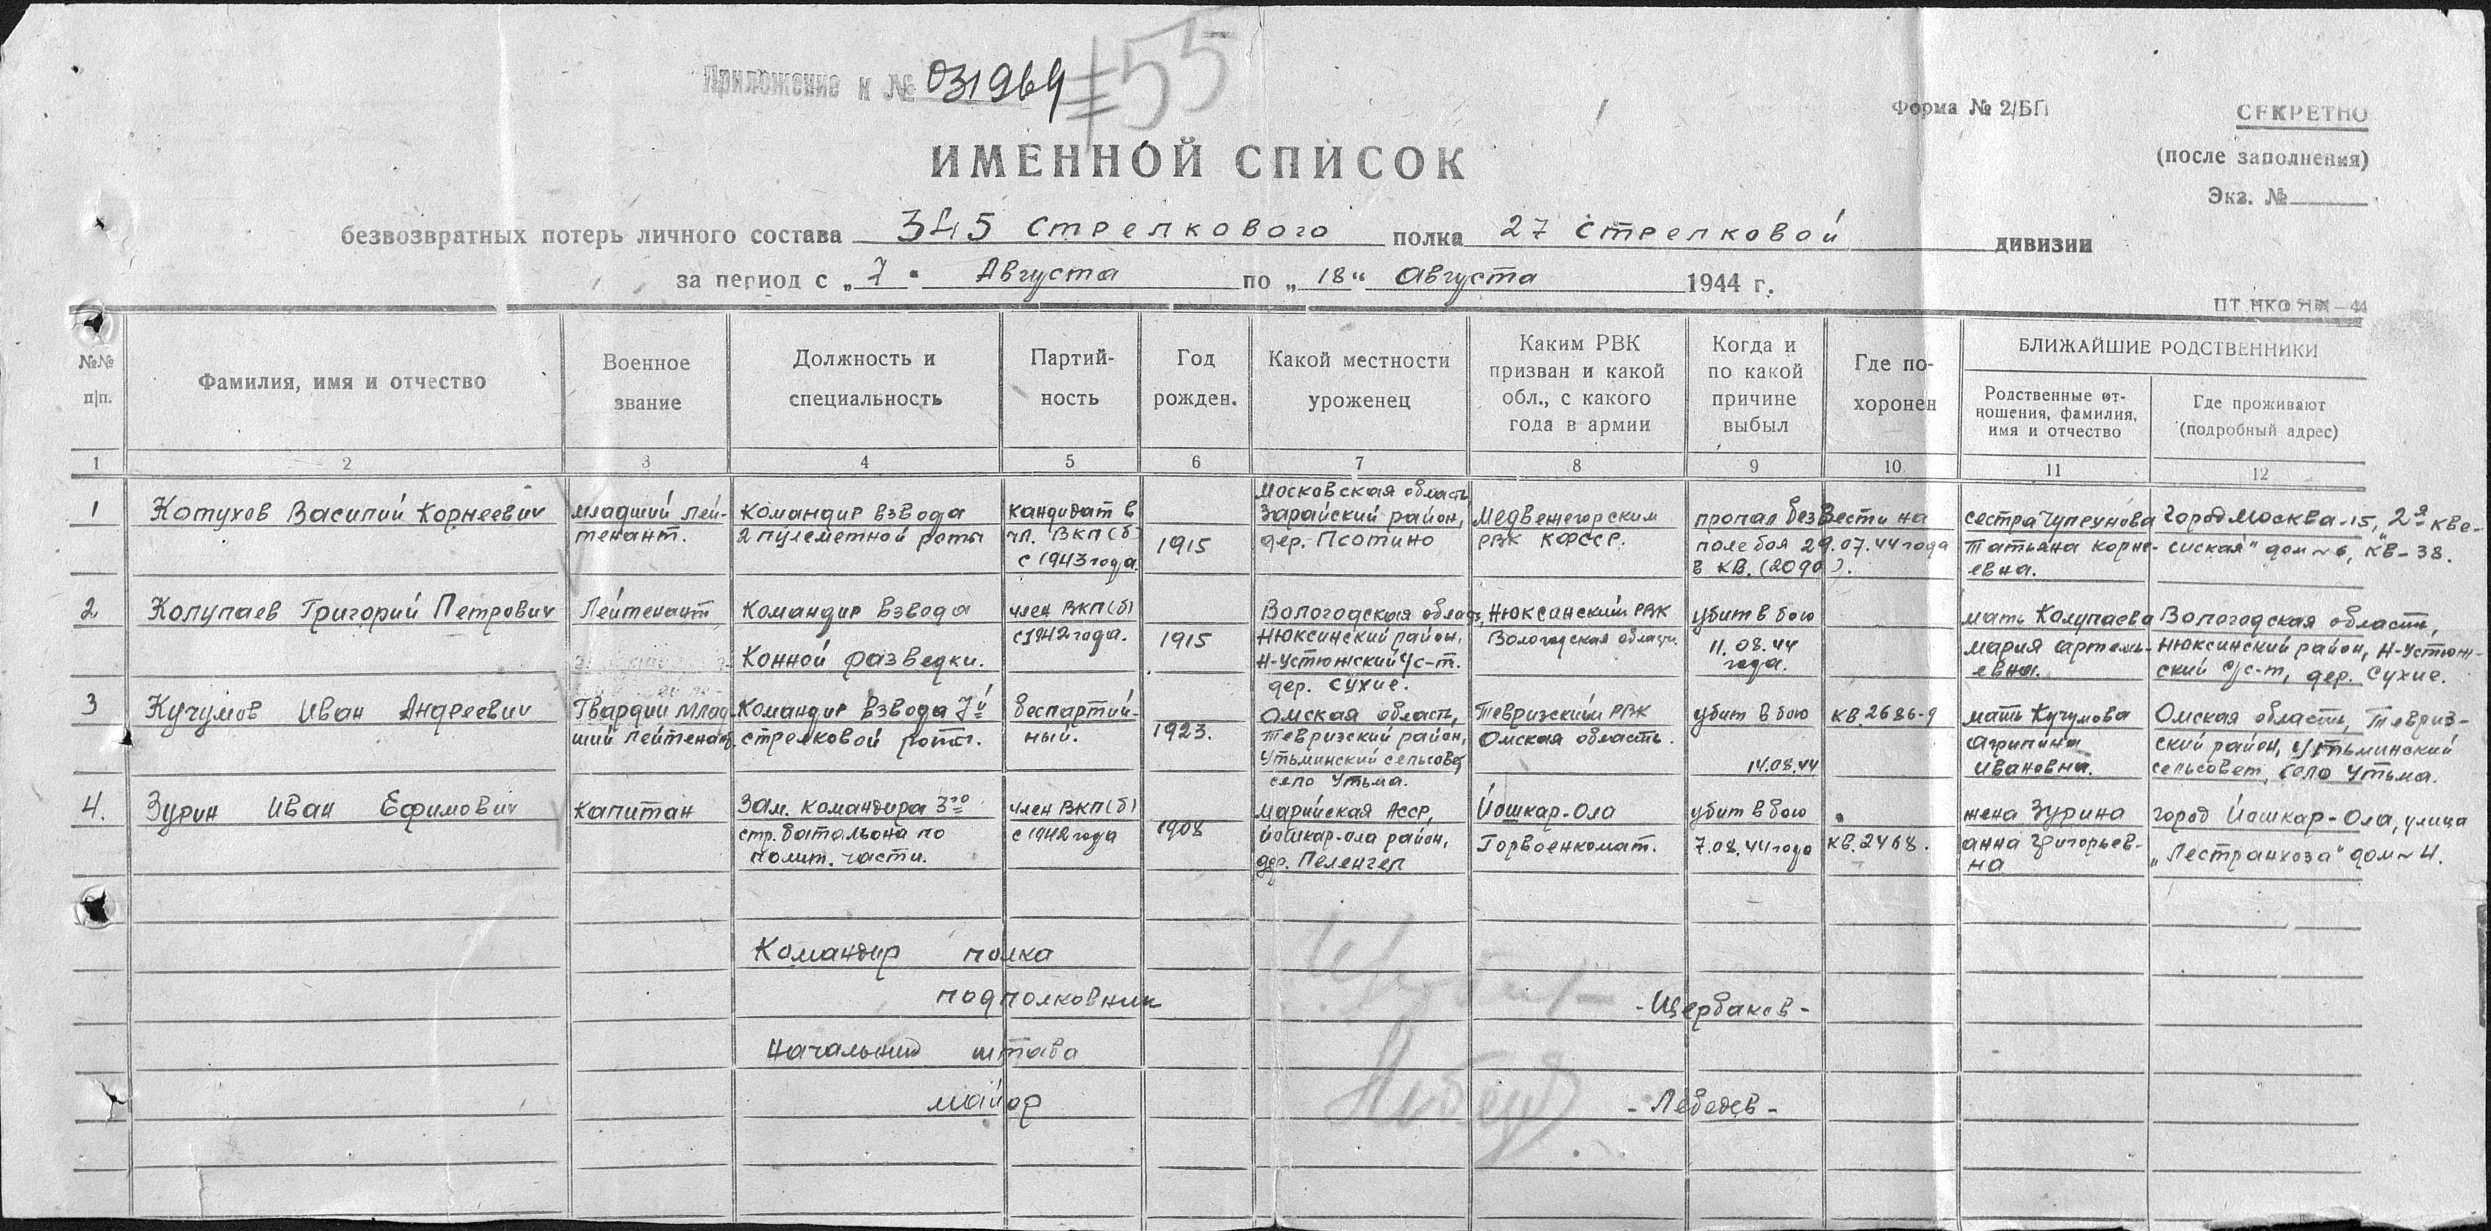 Приложение к № 031964
55
Форма № 2/БП
СЕКРЕТНО
(после заполнения)
Экз. №
ИМЕННОЙ СПИСОК
безвозвратных потерь личного состава 345 стрелкового полка 27 стрелковой дивизии
за период с „7" Августа по „18" Августа 1944 г.
№№ п|п.
Фамилия, имя и отчество
Военное звание
Должность и специальность
Партий-ность
Год рожден.
Какой местности уроженец
Каким РВК призван и какой обл., с какого года в армии
Когда и по какой причине выбыл
Где по-хоронен
БЛИЖАЙШИЕ РОДСТВЕННИКИ
Родственные от-ношения, фамилия, имя и отчество
Где проживают (подробный адрес)
1 2 3 4 5 6 7 8 9 10 11 12
1
Котухов Василий Корнеевич
младший лей-
тенант.
Командир взвода
2 пулеметной роты
кандидат в
чл. ВКП(б)
с 1943 года.
1915
Московская область
Зарайский район,
дер. Псотино
Медвежегорским
РВК КФССР.
пропал без вести на
поле боя 29.07.44 года
в кв. (2090).
сестра
Татьяна Корне-
евна.
город Москва-15, 2я
дом № 6, кв-38.
2
Колупаев Григорий Петрович
Лейтенант
Командир взвода
Конной разведки.
член ВКП(б)
с 1942 года.
1915
Вологодская област,
Нюксинский район,
Н-Устюжский с/с-т.
дер. Сухие.
Нюксинский РВК
Вологодская
убит в бою
11.08.44
года.
мать Колупаева
мария артемь-
евна.
Вологодская область,
Нюксинский район, Н-Устюж-
ский с/с-т, дер. Сухие.
3
Кучумов Иван Андреевич
Гвардии млад-
ший лейтенант.
Командир взвода 7й
стрелковой роты.
беспартий-
ный.
1923.
Омская область,
Тевризский район,
Утьминский сельсовет
село Утьма.
Тевризский РВК
Омская область.
убит в бою
14.08.44
кв. 2686-9
мать Кучумова
Агрипина
Ивановна.
Омская область, Тевриз-
ский район, Утьминский
сельсовет, село Утьма.
4.
Зурин Иван Ефимович
капитан
Зам. командира 3го
стр. батальона по
полит. части.
член ВКП(б)
с 1942 года
1908
марийская АССР,
йошкар-ола район,
дер. Пеленгер
Йошкар-Ола
Горвоенкомат.
убит в бою
7.08.44 года
кв. 2468.
жена Зурина
анна Григорьев-
на
город Йошкар-Ола, улица
„Лестранхоза" дом № 4.
Командир полка
подполковник -Щербаков-
Начальник штаба
майор -Лебедев-